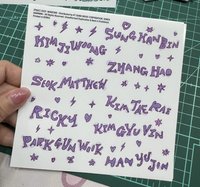 SUNG HAN BIN
KIM JI WOONG
ZHANG HAO
SEOK MATTHEW
KIM TAE RAE
RICKY
KIM GYU VIN
PARK GUN WOOK
HAN YU JIN